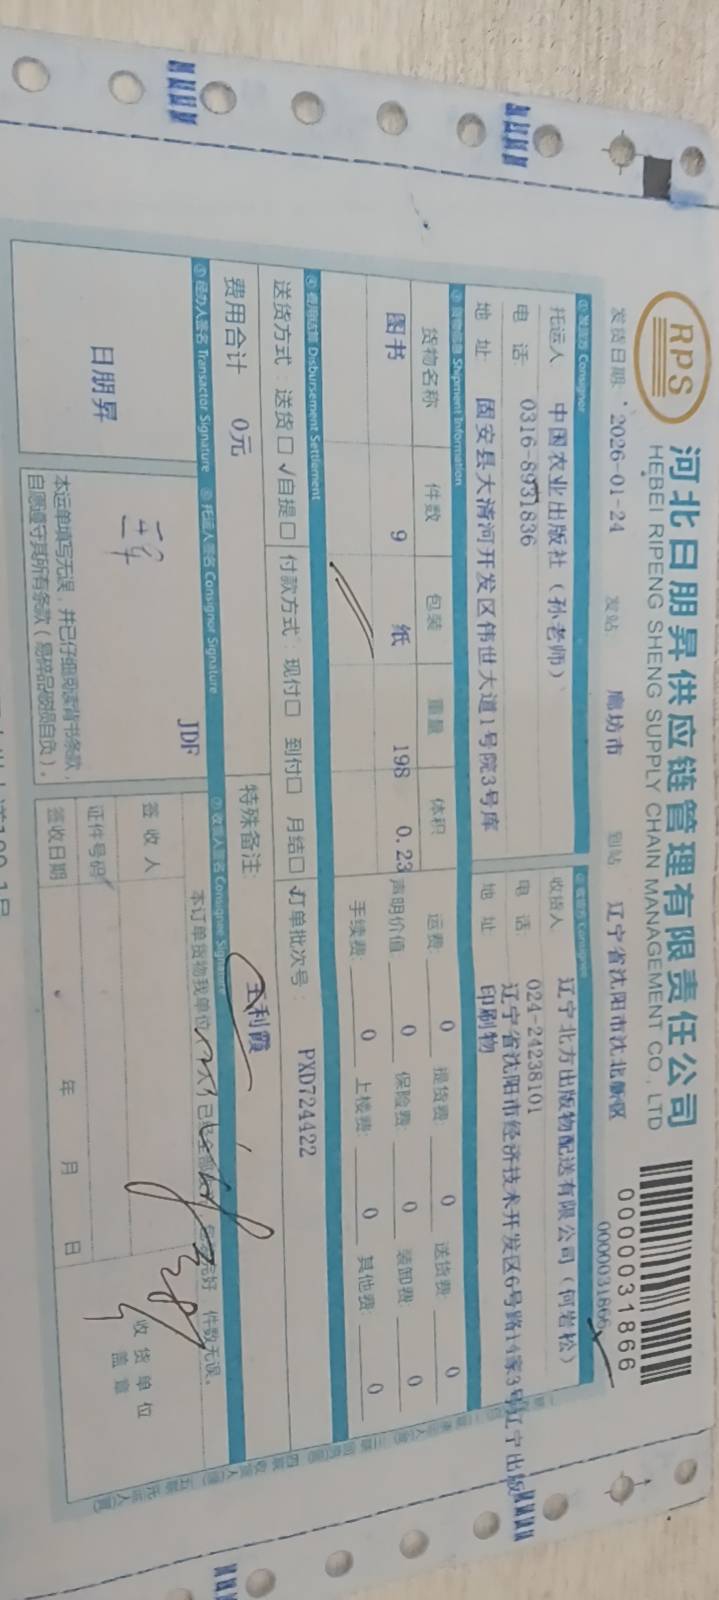 RPS
河北日朋昇供应链管理有限责任公司
HEBEI RIPENG SHENG SUPPLY CHAIN MANAGEMENT CO., LTD
0000031866
0000031866
发货日期: 2026-01-24 发站: 廊坊市 到站: 辽宁省沈阳市沈北新区
①发货方 Consignor
②收货方 Consignee
托运人 中国农业出版社（孙老师）
收货人 辽宁北方出版物配送有限公司（何岩松）
电 话: 0316-8931836
电 话: 024-24238101
地 址: 固安县大清河开发区伟世大道1号院3号库
地 址: 辽宁省沈阳市经济技术开发区6号路14家3号辽宁出版
印刷物
③货物信息 Shipment Information
货物名称 件数 包装 重量 体积
图书 9 纸 198 0.23
运费: 0 提货费: 0 送货费: 0
声明价值: 0 保险费: 0 装卸费: 0
手续费: 0 上楼费: 0 其他费: 0
④费用结算 Disbursement Settlement
送货方式: 送货□ √自提□ 付款方式: 现付□ 到付□ 月结□ √
订单批次号: PXD724422
费用合计 0元
特殊备注: 王利霞
⑤经办人签名 Transactor Signature
⑥托运人签名 Consignor Signature
⑦收货人签名 Consignee Signature
日朋昇
JDF
本运单填写无误，并已仔细阅读背书条款，
自愿遵守其所有条款（易碎品破损自负）。
本订单货物我单位
已经全部
完好 件数无误。
签收人
证件号码
签收日期 年 月 日
收货单位
盖章